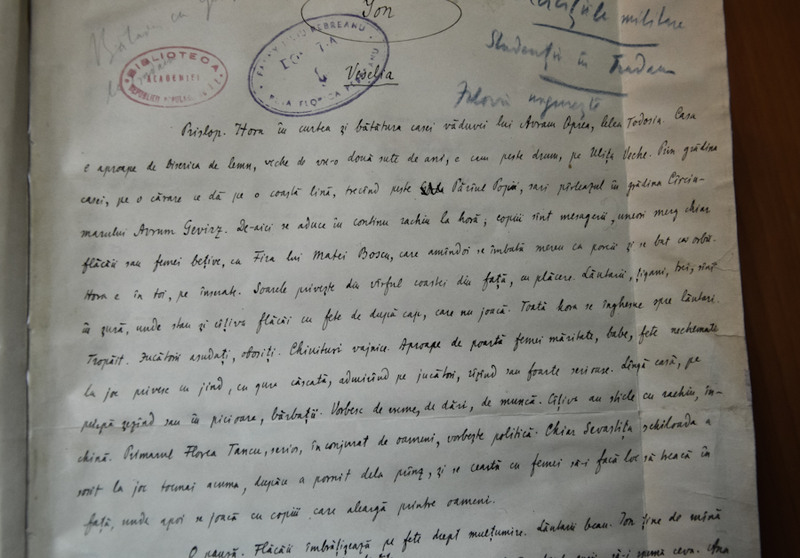 Ion
militare
Studenții în
BIBLIOTECA
ACADEMIEI
REPUBLICII POPULARE
REBREANU
PUIA FLORICA REBREANU
Veselia
Prislop. Hora în curtea și bătătura casei văduvii lui Avram Oprea, lelea Todosia. Casa
e aproape de biserica de lemn, veche de vre-o două sute de ani, e cam peste drum, pe Ulița Veche. Prin grădina
casei, pe o cărare ce dă pe o coastă lină, trecînd peste Pârîul Popii, sari pîrleazul în grădina Cîrciu-
marului Avrum Gevirz. De-aici se aduce în continu rachiu la horă; copiii sînt mesagerii, uneori merg chiar
flăcăii sau femei bețive, ca Fira lui Matei Boscu, care amîndoi se îmbată mereu ca porcii și se bat ca orbii.
Hora e în toi, pe înserate. Soarele privește din vîrful coastei din față, cu plăcere. Lăutarii, țigani, trei, sînt
în șură, unde stau și cîțiva flăcăi cu fete de după cap, care nu joacă. Toată hora se înghesue spre lăutari.
Tropăit. Jucătorii asudați, obosiți. Chiuituri vajnice. Aproape de poartă femei măritate, babe, fete nechemate
la joc privesc cu jind, cu gura căscată, admirînd pe jucători, rîzînd sau foarte serioase. Lîngă casă, pe
prispă șezînd sau în picioare, bărbații. Vorbesc de vreme, de dări, de muncă. Cîțiva au sticle cu rachiu, în-
chină. Primarul Florea Tancu, serios, înconjurat de oameni, vorbește politică. Chiar Sevastița schiloada a
sosit la joc tocmai acuma, dupăce a pornit dela prînz, și se ceartă cu femei să-i facă loc să treacă în
față, unde apoi se joacă cu copiii care aleargă printre oameni.
O pauză. Flăcăii îmbrățișează pe fete drept mulțumire. Lăutarii beau. Ion ține de mînă
ceva. Ana